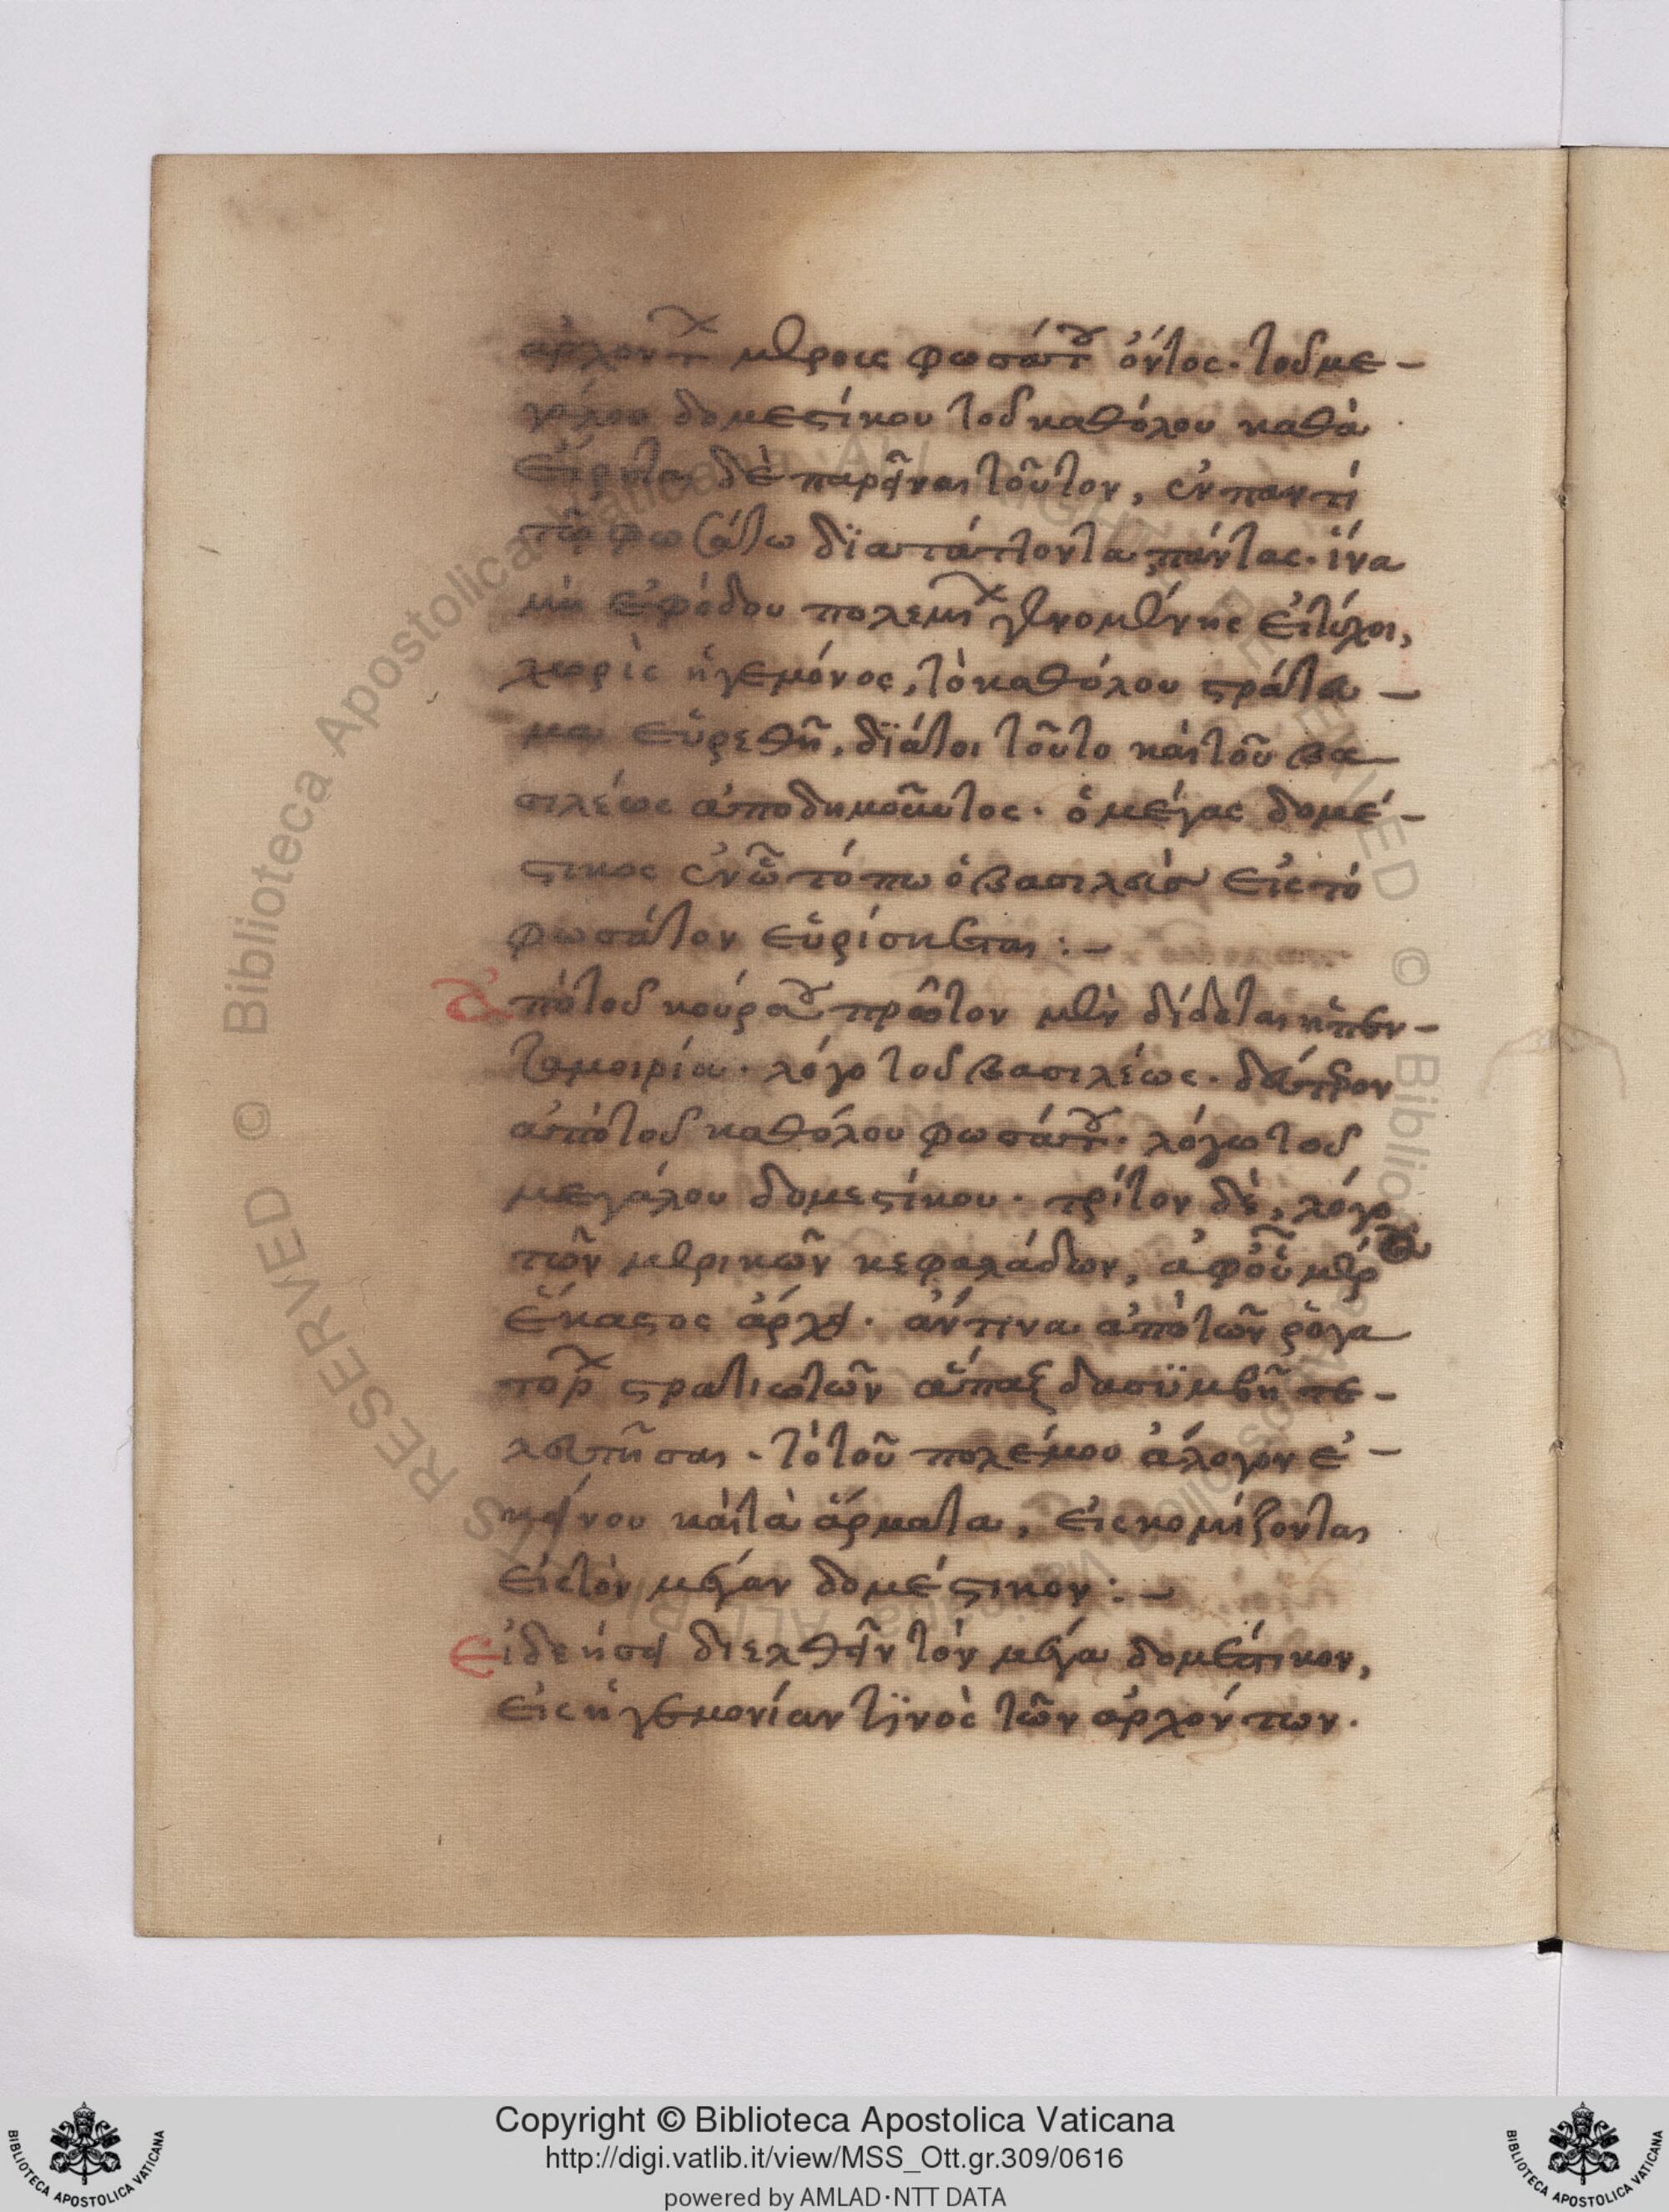 ἄρχοντος μέρους φωσάτου ὄντος· τοῦ με-
γάλου δομεστίκου τοῦ καθόλου καθὰ
εἴρηται δὲ παρεῖναι τοῦτον, ἐν παντὶ
τῷ φωσάτω διατάττοντα πάντας· ἵνα
μὴ ἐφόδου πολεμικῆς γινομένης εἰ τύχοι,
χωρὶς ἡγεμόνος, τὸ καθόλου στράτευ-
μα εὑρεθῆ, διάτοι τοῦτο καὶ τοῦ βα-
σιλέως ἀποδημοῦντος· ὁ μέγας δομέ-
στικος ἐν ὧ τόπω ὁ βασιλεὺς εἰς τὸ
φωσάτον εὑρίσκεται :-
ἀπὸ τοῦ κούρσου πρῶτον μὲν δίδεται ἡ πεν-
ταμοιρία· λόγω τοῦ βασιλέως· δεύτερον
ἀπὸ τοῦ καθόλου φωσάτου· λόγω τοῦ
μεγάλου δομεστίκου· τρίτον δὲ, λόγω
τῶν μερικῶν κεφαλάδων, ἀφ' οὗ μέρους
ἕκαστος ἄρχει· ἄντινα ἀπὸ τῶν ῥογα
τόρων στρατιωτῶν ἅπαξ δα συμβῆ τε-
λευτῆσαι· τὸ τοῦ πολέμου ἄλογον ἐ-
κείνου καὶ τὰ ἄρματα, εἰσκομίζονται
εἰς τὸν μέγαν δομέστικον :-
εἰ δεήσει διελθεῖν τὸν μέγα δομέστικον,
εἰς ἡγεμονίαν τινὸς τῶν ἀρχόντων.
Copyright © Biblioteca Apostolica Vaticana
http://digi.vatlib.it/view/MSS_Ott.gr.309/0616
powered by AMLAD·NTT DATA
BIBLIOTECA APOSTOLICA VATICANA
BIBLIOTECA APOSTOLICA VATICANA